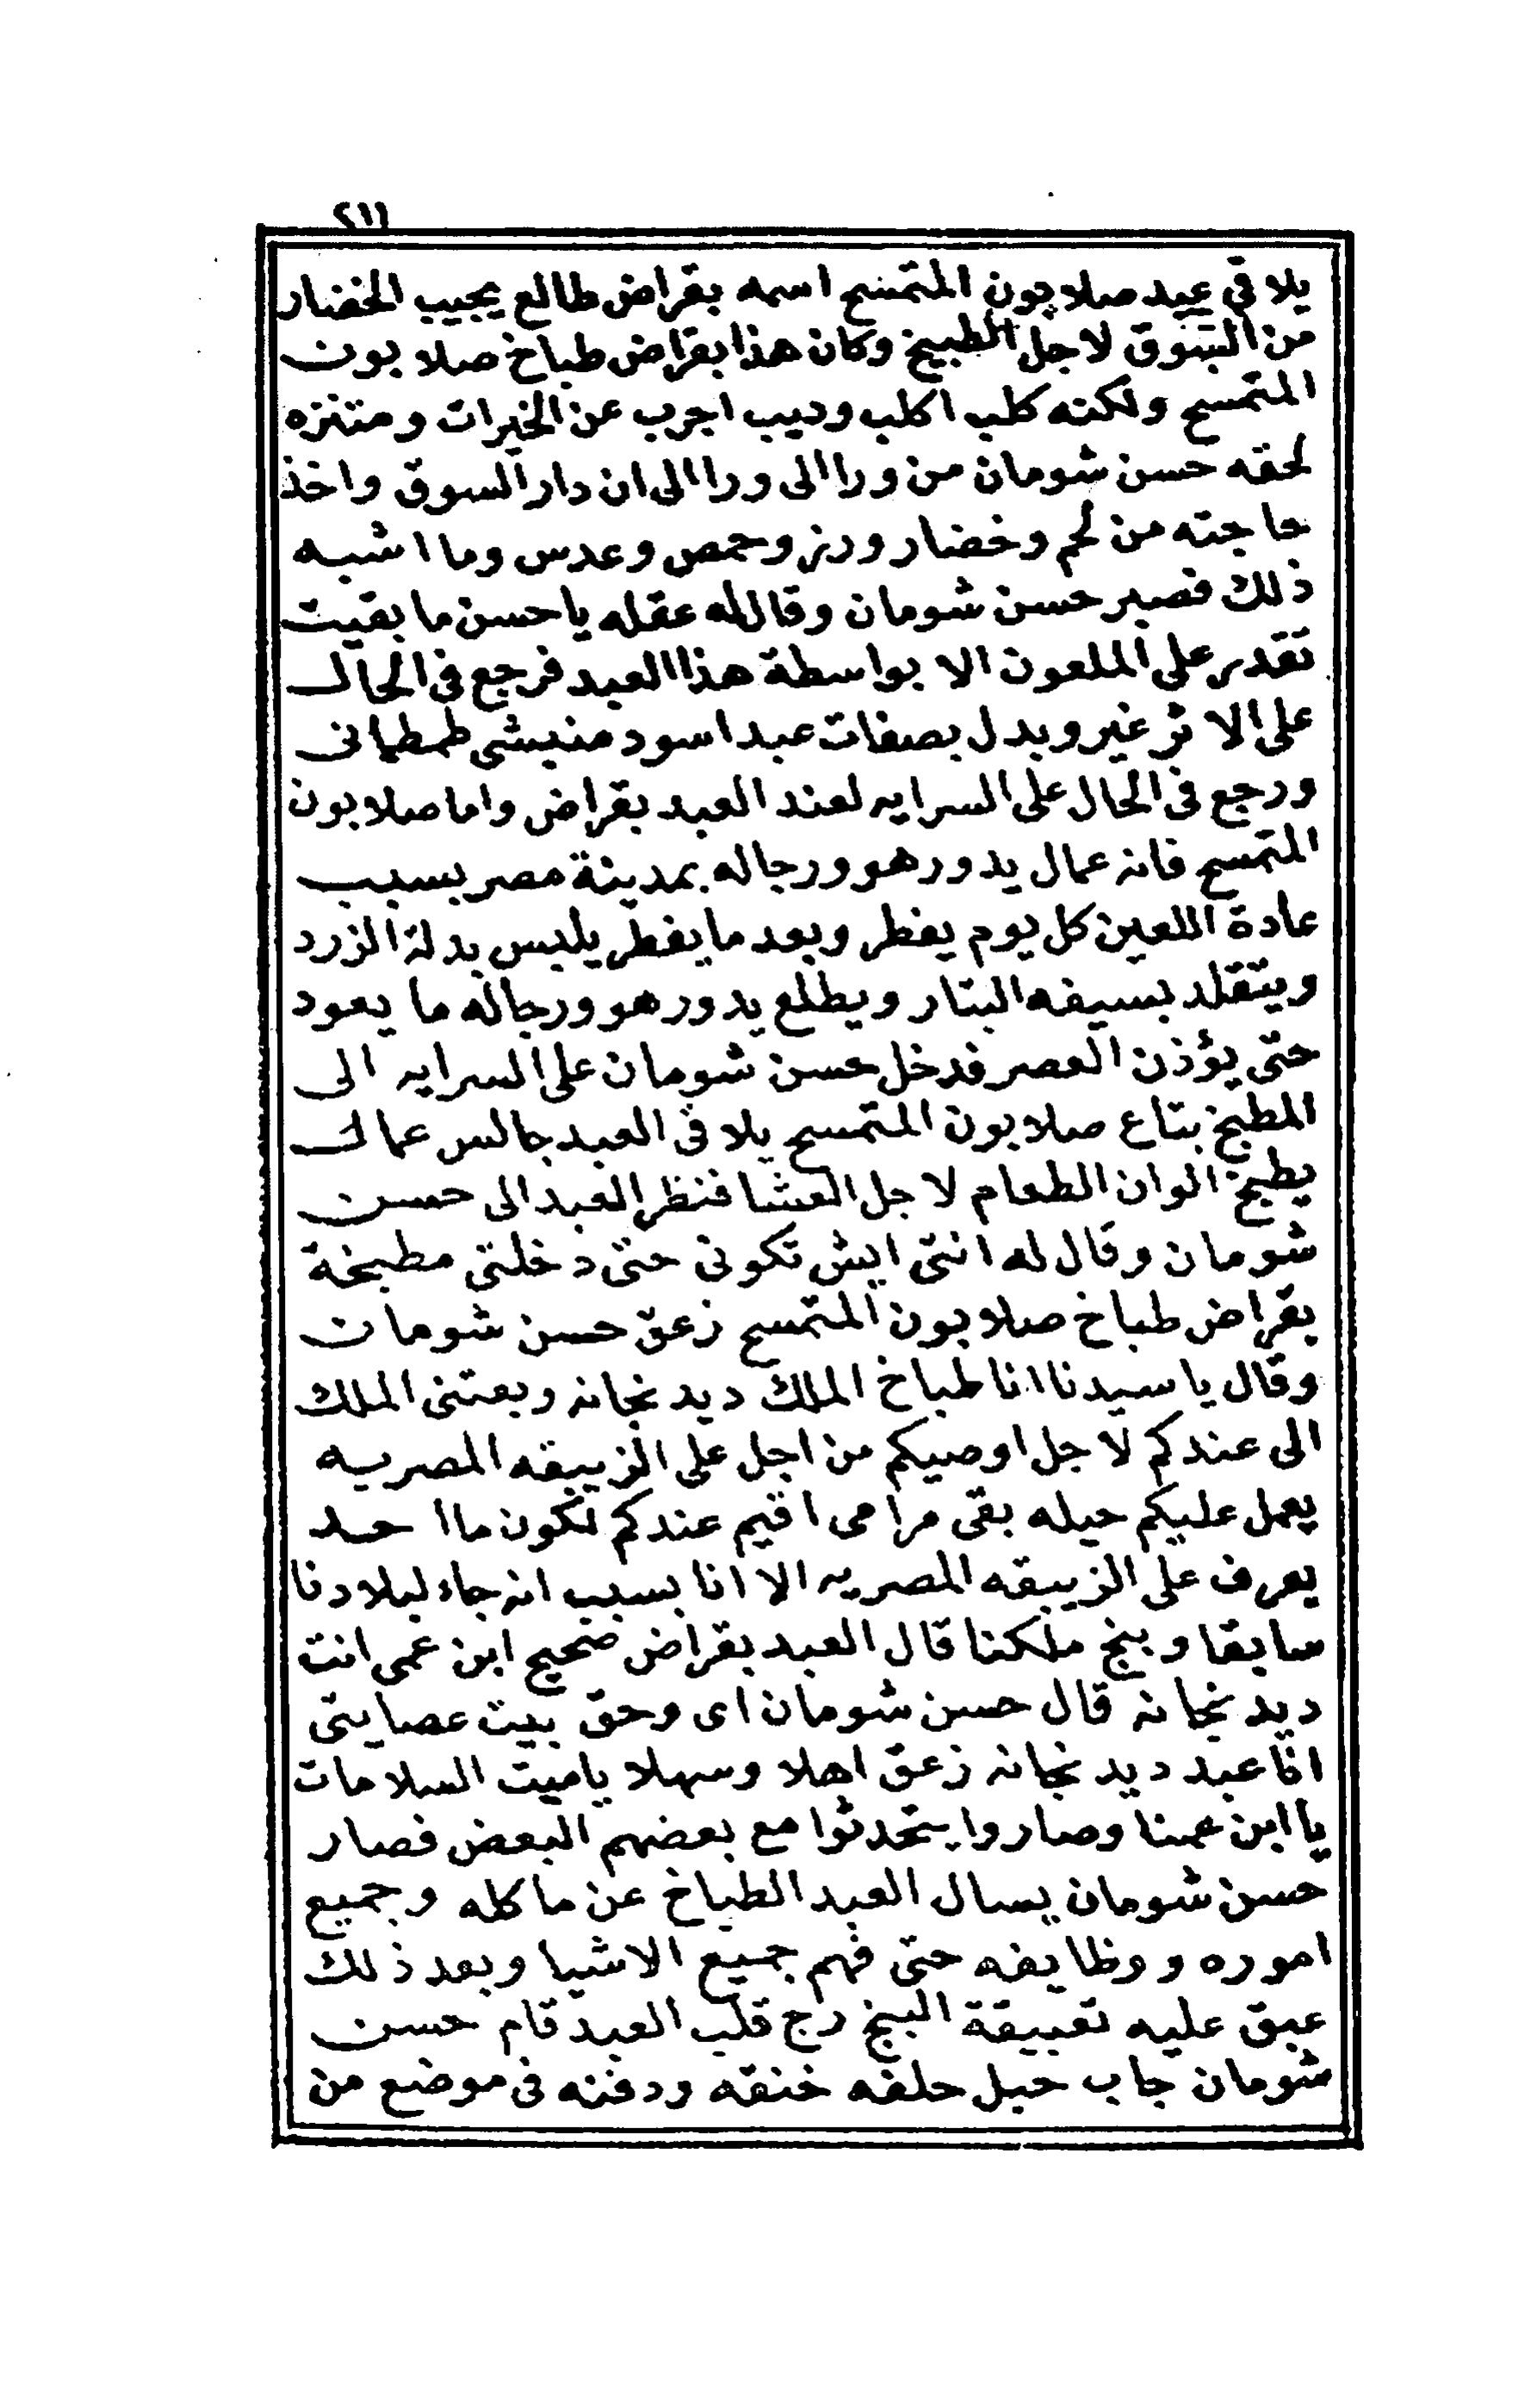 ٢١١
يلاقى عبد صلابون المتمسح اسمه بقراض طالع يجيب الخضار
من السوق لاجل الطبيخ وكان هذا بقراض طباخ صلابون
المتمسح ولكنه كلب اكلب وديب اجرب عن الخيرات ومتنزه
لحقه حسن شومان من ورا الى ورا الى ان دار السوق واخذ
حاجته من لحم وخضار ورز وحمص وعدس وما اشبه
ذلك فصبر حسن شومان وقال له عقله يا حسن ما بقيت
تقدر على الملعون الا بواسطة هذا العبد فرجع فى الحال
على الاثر غير وبدل بصفات عبد اسود منيشى طمطمانى
ورجع فى الحال على السرايه لعند العبد بقراض واما صلابون
المتمسح فانه عمال يدور هو ورجاله بمدينة مصر بسبب
عادة اللعين كل يوم يفطر وبعد ما يفطر يلبس بدلة الزرد
ويتقلد بسيفه البتار ويطلع يدور هو ورجاله ما يعود
حتى يؤذن العصر فدخل حسن شومان على السرايه الى
المطبخ بتاع صلابون المتمسح يلاقى العبد جالس عمال
يطبخ الوان الطعام لاجل العشا فنظر العبد الى حسن
شومان وقال له انتى ايش تكونى حتى دخلتى مطبخة
بقراض طباخ صلابون المتمسح زعق حسن شومان
وقال يا سيدنا انا طباخ الملك ديد نجانه وبعتنى الملك
الى عندكم لاجل اوصيكم من اجل على الزيبقه المصريه
يعمل عليكم حيله بقى مرامى اقيم عندكم لكون ما احد
يعرف على الزيبقه المصريه الا انا بسبب انه جاء لبلادنا
سابقا وبنج ملكنا قال العبد بقراض صحيح ابن عمى انت
ديد نجانه قال حسن شومان اى وحق بيت عصايتى
انا عبد ديد نجانه زعق اهلا وسهلا ياميت السلامات
يا ابن عمنا وصاروا يتحدثوا مع بعضهم البعض فصار
حسن شومان يسال العبد الطباخ عن ماكله وجميع
اموره ووظايفه حتى فهم جميع الاشيا وبعد ذلك
عبق عليه تعبيقة البنج رج قلب العبد قام حسن
شومان جاب حبل حلفه خنقه ودفنه فى موضع من